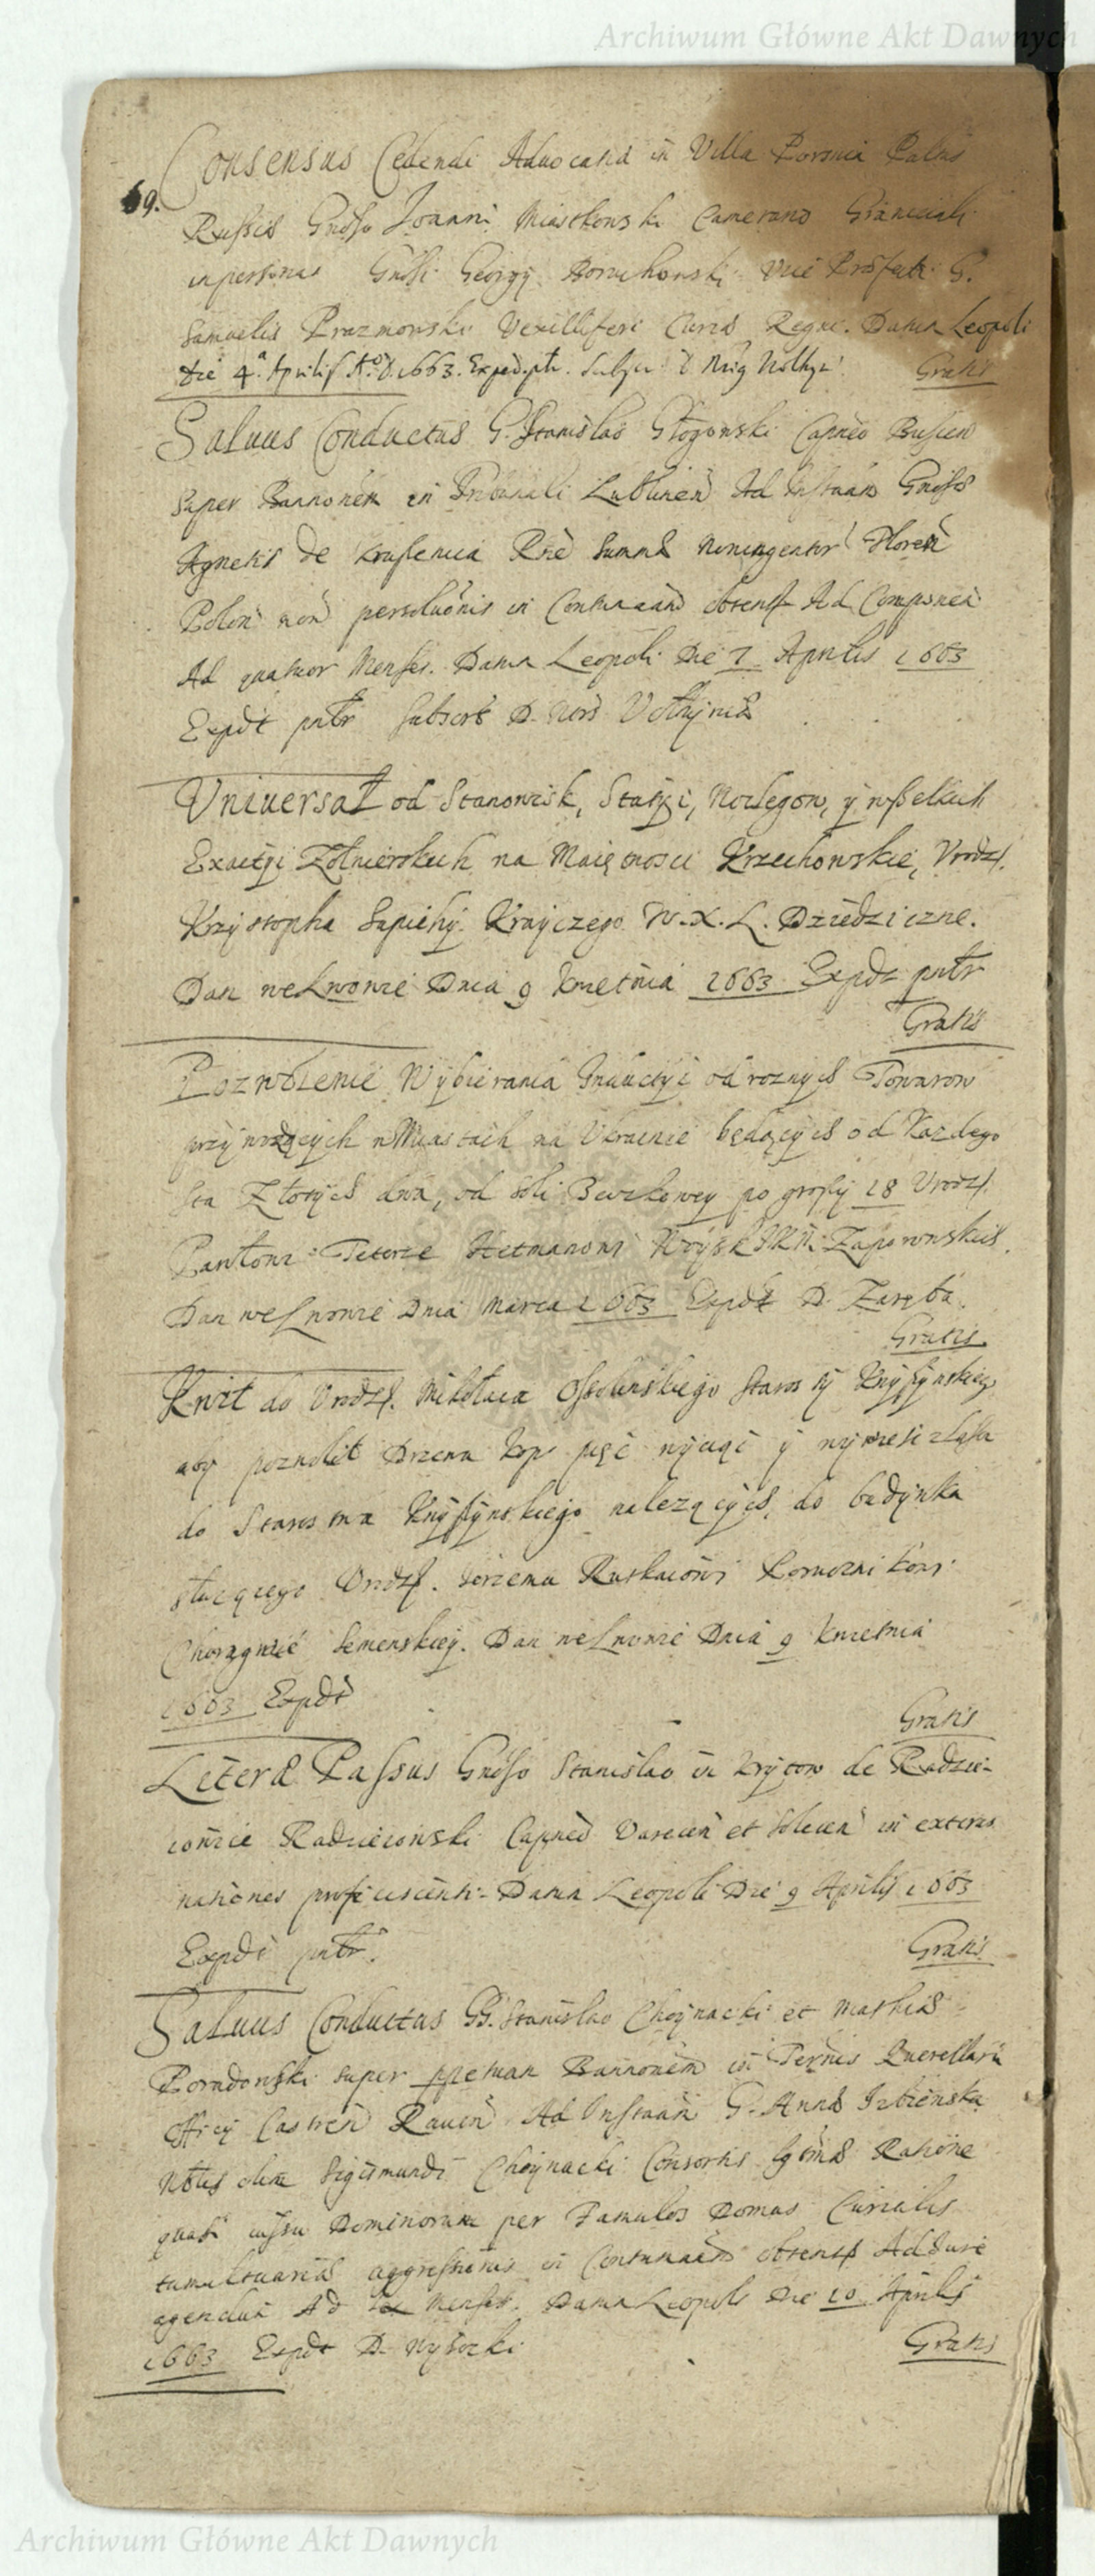 Archiwum Główne Akt Dawnych
Consensus Cedendi Aduocatia in Villa Palus
69.
Russiæ Gnoso Joanni Miastkowski Camerario Graniciali
in personas Gnosi Georgy Vice
Samuelis Prazmowski Vexilliferi Curiæ Regni. Datum Leopoli
Die 4ª Aprilis Aº D. 1663. Exped. ptr.
Gratis
Saluus Conductus G. Stanislao Głogowski Capneo Buscen
super Bannonem in Tribunali Lublinen Ad Instaan Gnosæ
Agnetis de Rne Summæ Floren
Polon non persolutionis in Contumaam obtent Ad Componen
Ad quatuor Menses. Datum Leopoli Die 7 Aprilis 1663
Expdt pntr
Vniuersał od Stanowisk, Staczi, Noclegow, y wszelkich
Exactyi Zołnierskich na Maiętnosci Krzechowskie, Vrodz.
Krzysztopha Sapiehy Krayczego W. X. L. Dziedziczne.
Dan we Lwowie Dnia 9 Kwietnia 1663 Expdt pntr
Gratis
Pozwolenie Wybierania Inductyi od roznych Towarow
przywozących w Miastach na Vkrainie będących od Kazdego
sta Złotych dwa, od soli Beczkowey po groszy 18 Vrodz.
Pawłowi Teterze Hetmanowi Woysk JKM Zaporowskich.
Dan we Lwowie Dnia Marca 1663 Expdt D. Zaręba.
Gratis
Kwit do Vrodz. Mikołaia Ossolinskiego Starosty Knyszynskiego
aby pozwolił Drzewa kop pięć wyciąć y wywiesc z lasa
do Starostwa Knyszynskiego nalezących, do budynku
słuzącego Vrodz. Jerzemu
Dan we Lwowie Dnia 9 Kwietnia
1663 Expdt
Gratis
Literæ Passus Gnoso Stanislao in Krytow de Radzie-
iowice Radzieiowski Capneo Varecen et Solecen in exteras
nationes proficiscenti. Datum Leopoli Die 9 Aprilis 1663
Expdt pntr.
Gratis
Saluus Conductus GG. Stanislao Choynacki et Mathiæ
Poradowski super ppetuam Bannonem in Termis Querellaru
Officy Castren Rauen Ad Instaan G. Annæ
olim Sigismundi Choynacki Consortis Ratione
quasi iussu Dominorum per Famulos Domus Curialis
tumultuariæ aggressionis in Contumaam obtent Ad Jure
agendum Ad sex Menses. Datum Leopoli Die 10 Aprilis
1663 Expdt D. Wysocki
Gratis
Archiwum Główne Akt Dawnych